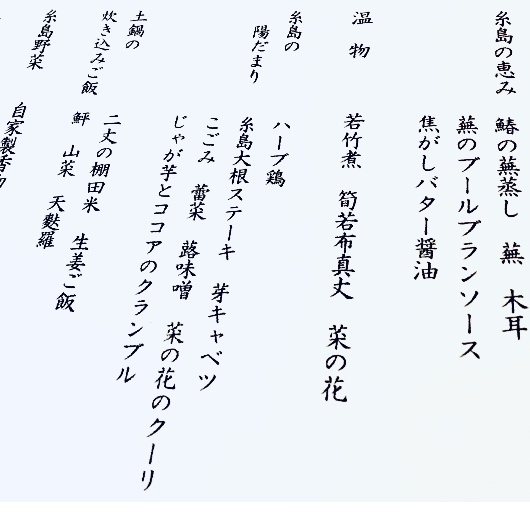 糸島の恵み 鰆の蕪蒸し 蕪 木耳
蕪のブールブランソース
焦がしバター醤油
温物 若竹煮 筍若布真丈 菜の花
糸島の
陽だまり
ハーブ鶏
糸島大根ステーキ 芽キャベツ
こごみ 蕾菜 蕗味噌 菜の花のクーリ
じゃが芋とココアのクランブル
土鍋の
炊き込みご飯
二丈の棚田米 生姜ご飯
鮃 山菜 天麩羅
糸島野菜
自家製香